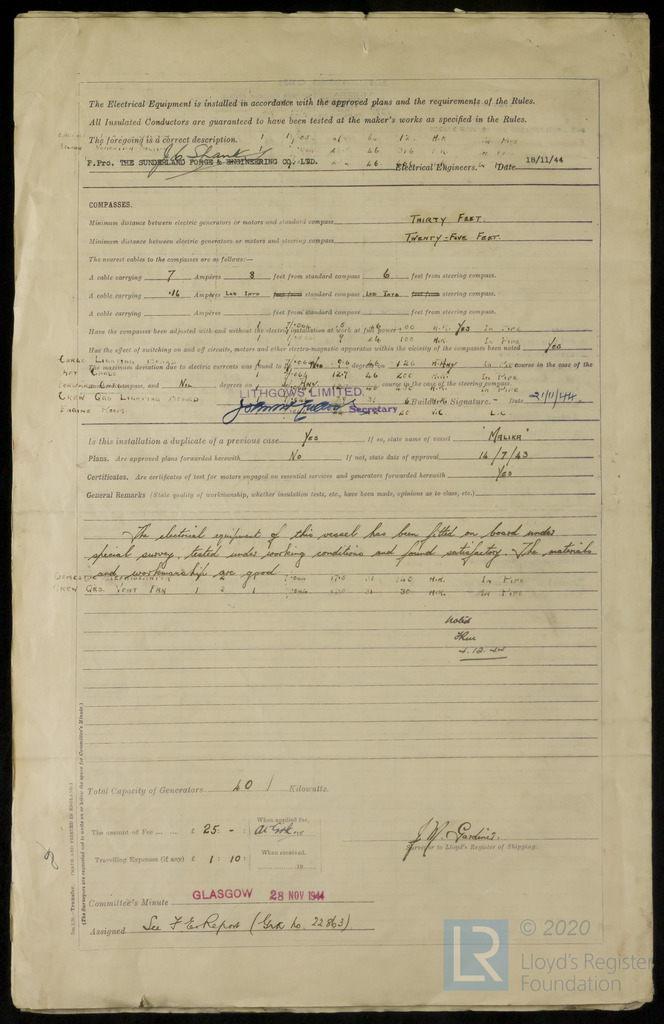 The Electrical Equipment is installed in accordance with the approved plans and the requirements of the Rules.
All Insulated Conductors are guaranteed to have been tested at the maker's works as specified in the Rules.
The foregoing is a correct description.
P.Pro. THE SUNDERLAND FORGE & ENGINEERING CO., LTD. Electrical Engineers. Date 18/11/44
COMPASSES.
Minimum distance between electric generators or motors and standard compass THIRTY FEET.
Minimum distance between electric generators or motors and steering compass TWENTY-FIVE FEET.
The nearest cables to the compasses are as follows:—
A cable carrying 7 Ampères 8 feet from standard compass 6 feet from steering compass.
A cable carrying .16 Ampères LED INTO standard compass LED INTO steering compass.
A cable carrying Ampères feet from standard compass feet from steering compass.
Have the compasses been adjusted with and without the electric installation at work at full power Yes
Has the effect of switching on and off circuits, motors and other electro-magnetic apparatus within the vicinity of the compasses been noted Yes
The maximum deviation due to electric currents was found to be Nil degrees on Any course in the case of the
standard compass, and Nil degrees on Any course in the case of the steering compass.
LITHGOWS LIMITED.
Secretary Builder's Signature. Date 21/11/44.
Is this installation a duplicate of a previous case Yes If so, state name of vessel "MALIKA"
Plans. Are approved plans forwarded herewith No If not, state date of approval 14/7/43
Certificates. Are certificates of test for motors engaged on essential services and generators forwarded herewith Yes
General Remarks (State quality of workmanship, whether insulation tests, etc., have been made, opinions as to class, etc.)
The electrical equipment of this vessel has been fitted on board under
special survey, tested under working conditions and found satisfactory. The materials
and workmanship are good
Noted
4.12.44
Total Capacity of Generators 40 Kilowatts.
The amount of Fee ... ... £ 25 : - : When applied for,
J.W. Gardiner
Surveyor to Lloyd's Register of Shipping.
Travelling Expenses (if any) £ 1 : 10 : When received,
19
Committee's Minute GLASGOW 28 NOV 1944
Assigned See F.E. Report (Grk No. 22863)
(The Surveyors are requested not to write on or below the space for Committee's Minute.)
LR
© 2020
Lloyd's Register
Foundation